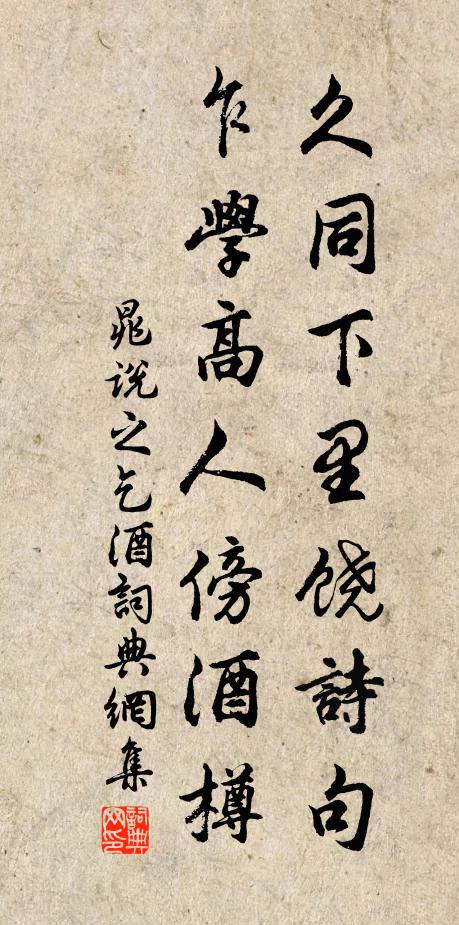 久同下里饶詩句
乍學高人傍酒樽
晁説之乞酒詞典網集
詞典網印